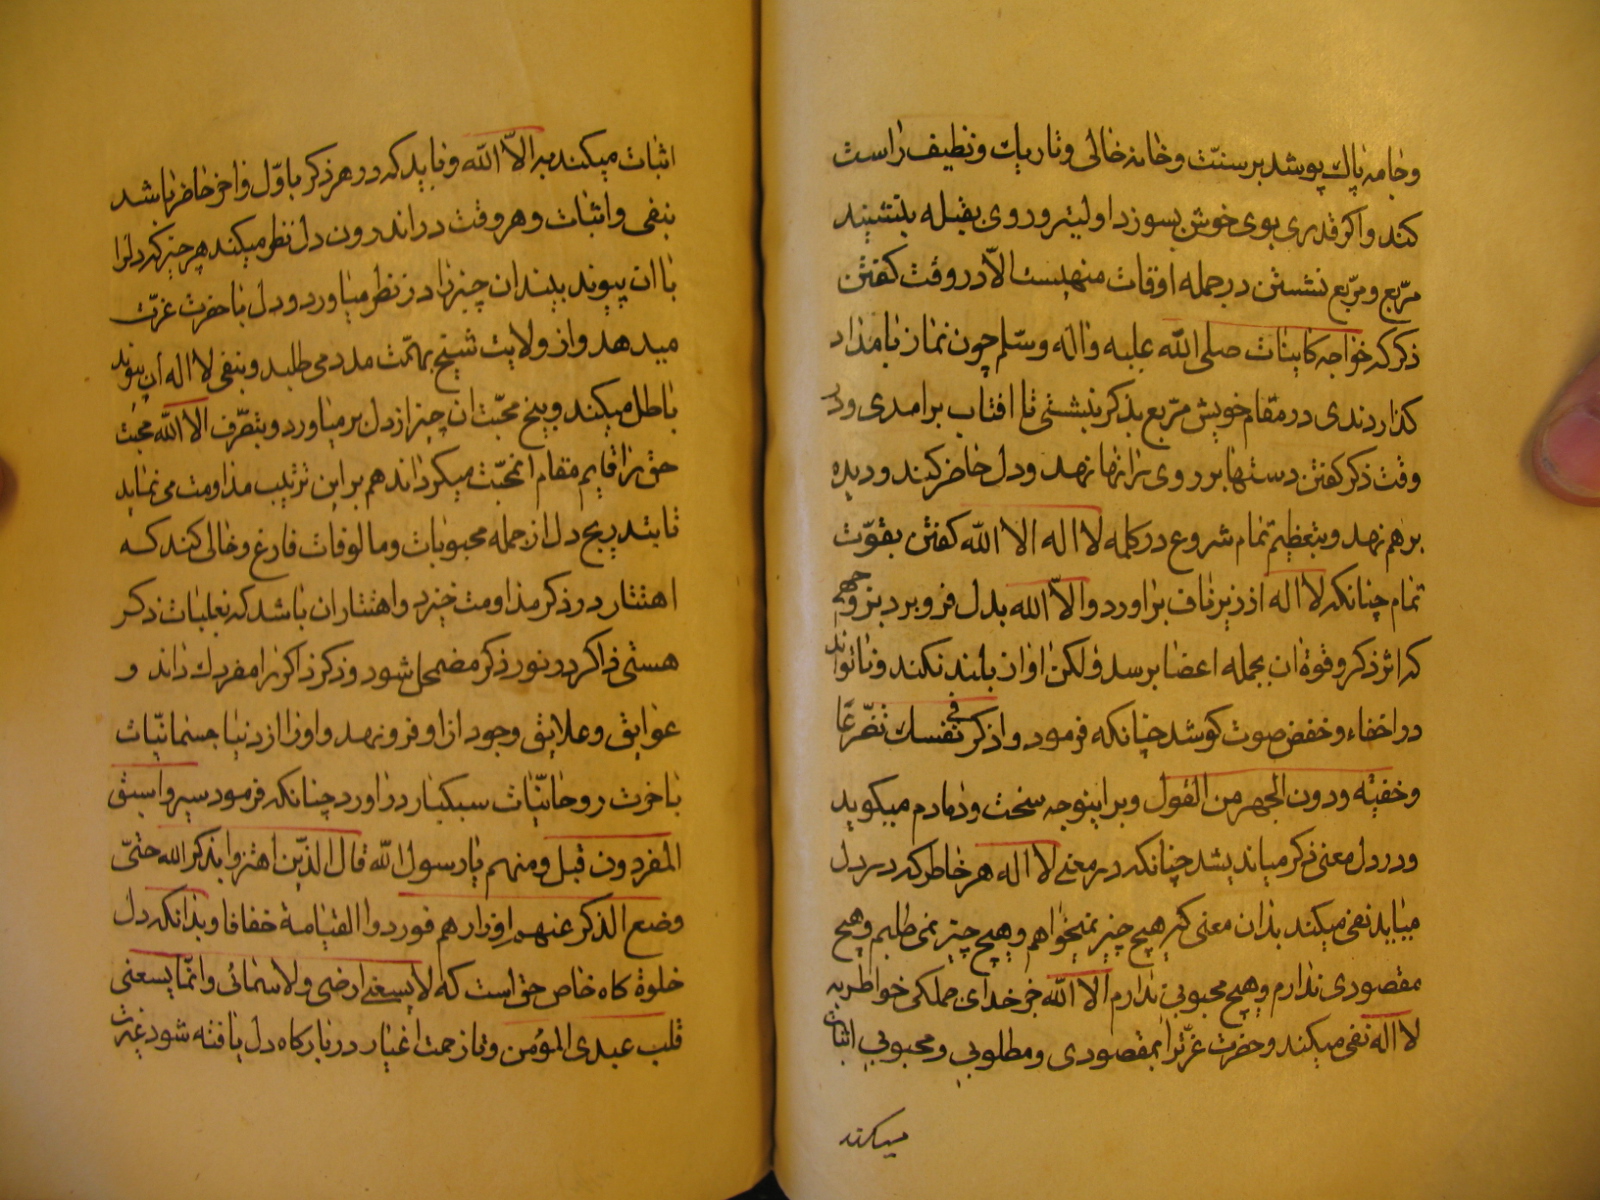 وجامه پاك پوشد بر سنت وخانه خالى وتاريك ونظيف راست
كند واكر قدرى بوى خوش بسوزد اوليتر وروى بقبله بنشيند
مربع ومربع نشستن در جمله اوقات منهيست الا در وقت كفتن
ذكر كه خواجه كاينات صلى الله عليه واله وسلم چون نماز بامداد
كذاردندى در مقام خويش مربع بذكر بنشستى تا افتاب برامدى ودر
وقت ذكر كفتن دستها بر روى رانها نهد ودل حاضر كند وديده
برهم نهد وبتعظيم تمام شروع در كلمه لا اله الا الله كفتن بقوت
تمام چنانكه لا اله از زير ناف براورد والا الله بدل فرو برد بر وجهى
كه اثر ذكر وقوة ان بجمله اعضا برسد ولكن اواز بلند نكند وتا تواند
در اخفاء وخفض صوت كوشد چنانكه فرمود واذكر فى نفسك تضرعا
وخفية ودون الجهر من القول وبر اينوجه سخت ودمادم ميكويد
ودر دل معنى ذكر مياند يشد چنانكه در معنى لا اله هر خاطر كه در دل
ميايد نفى ميكند بدان معنى كه هيچ چيز نميخواهم وهيچ چيز نمى طلبم وهيچ
مقصودى ندارم وهيچ محبوبى ندارم الا الله جز خداى جملكى خواطر به
لا اله نفى ميكند وحضرت عزت را بمقصودى ومطلوبى ومحبوبى اثبات
ميكند
اثبات ميكند به الا الله وبايد كه در هر ذكر باول واخر حاضر باشد
بنفى واثبات وهر وقت در اندرون دل نظر ميكند هر چيز كه دلرا
با ان پيوند بيند ان چيز را در نظر مياورد ودل با حضرت عزت
ميدهد واز ولايت شيخ بهمت مدد مى طلبد وبنفى لا اله ان پيوند
باطل ميكند وبيخ محبت ان چيز از دل بر مياورد وبتصرف الا الله محبت
حق را قايم مقام ان محبت ميكرداند هم براين ترتيب مداومت مى نمايد
تا بتدريج دل از جمله محبوبات ومالوفات فارغ وخالى كند كه
اهتتار در ذكر مداومت خيزد واهتتار ان باشد كه بغلبات ذكر
هستى ذاكر در نور ذكر مضمحل شود وذكر ذاكر را مفرد كرداند و
عوايق وعلايق وجود از او فرو نهد واو را از دنيا جسمانيات
باخرت روحانيات سبكبار در اورد چنانكه فرمود سيروا سبق
المفردون قيل ومنهم يا رسول الله قال الذين اهتزوا بذكر الله حتى
وضع الذكر عنهم اوزارهم فوردوا القيامة خفافا وبدانكه دل
خلوة كاه خاص حق است كه لا يسعنى ارضى ولا سمائى وانما يسعنى
قلب عبدى المؤمن وتا زحمت اغيار در باركاه دل يافته شود غيرت